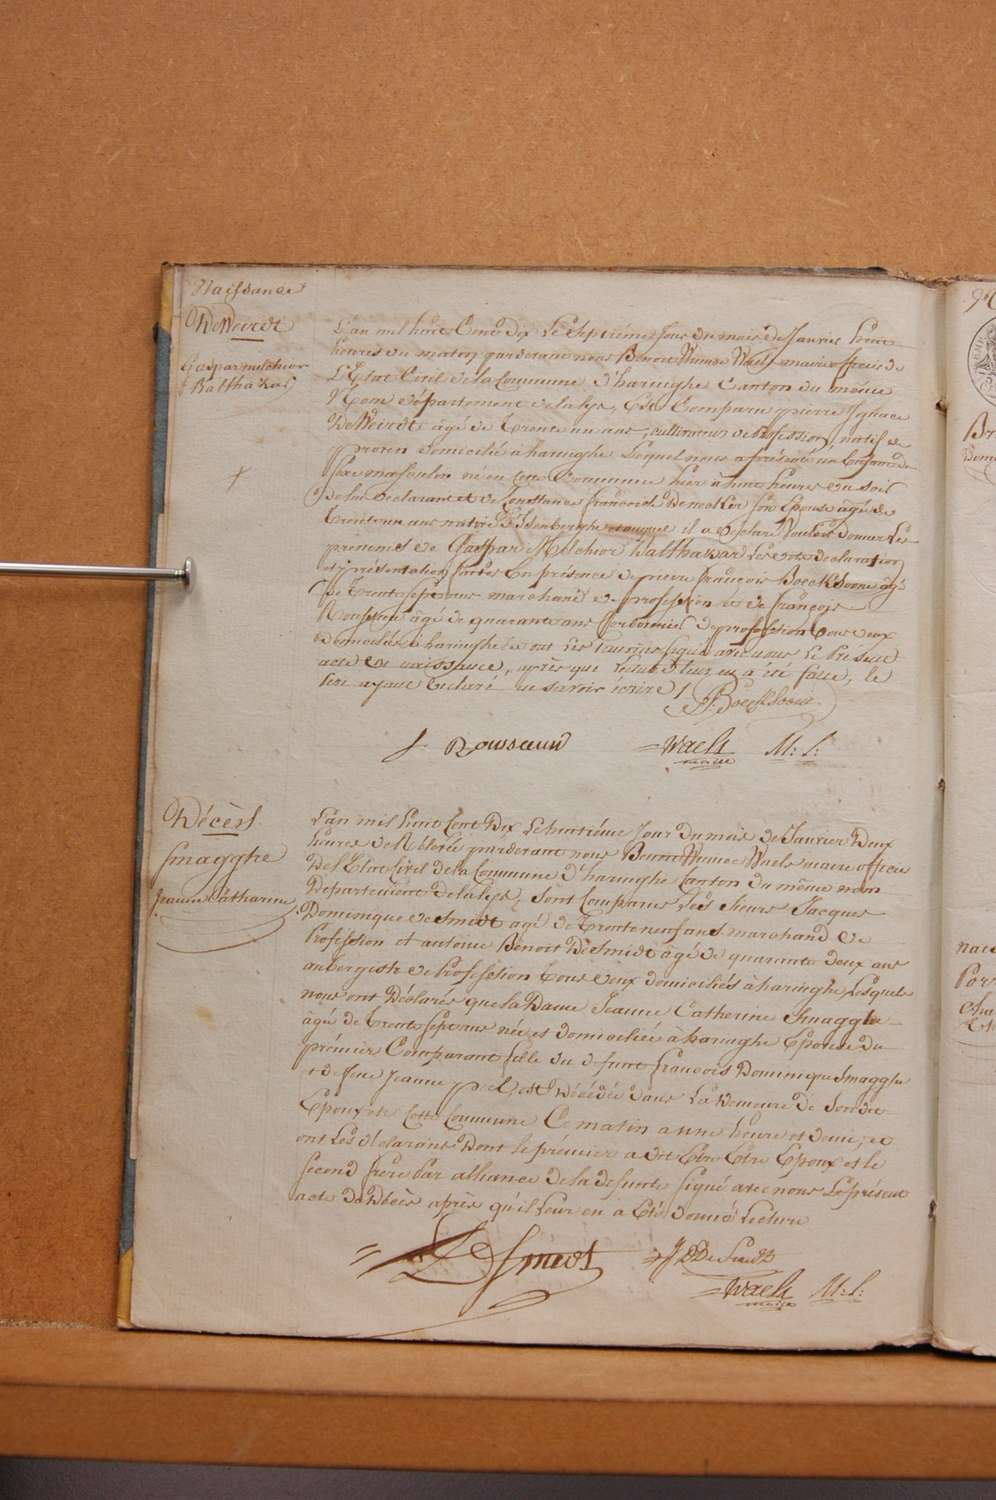 Naissance
DeWeirdt
Gaspar milchior
Balthazar
L'an mil huit Cent dix Le Septième Jour du mois de Janvier
heures du matin pardevant nous Benoit Wael maire officier de
L'Etat Civil de la Commune d'haringhe Canton du même
Nom département de la lys, Est Comparu pierre Ignace
DeWeirdt âgé de Trente un ans, cultivateur de Profession, natif de
proven domicilié à haringhe Lequel nous a présenté un Enfant de
Sexe masculin né en cette Commune hier à huit heures du soir
de lui declarant et de Constance françoise Denecker son Epouse âgé de
Trente un ans native d'Isenberghe auquel il a déclaré Vouloir donner Les
prenoms de Gaspar Milchior Balthazar Les dites déclaration
et présentation faites En présence de pierre françois Boeckdoone âgé
De Trente sept ans marchand de profession et de françois
Rousseau âgé de quarante ans de profession tous deux
domiciliés à haringhe et ont Les temoins signé avec nous Le Présent
acte de naissance, après que lecture leur en a été faite, le
père ayant declaré ne savoir écrire /
J Rousseau Wael M: l:
maire
Décès
Smagghe
Jeanne Catharine
L'an mil huit Cent dix Le huitième Jour du mois de Janvier Deux
heures de Relevée pardevant nous Benoit Waels maire officier
De L'Etat Civil de la Commune d'haringhe Canton du même nom
Departement de la lys, sont Comparus Les Sieurs Jacques
Dominique de Smidt agé de Trente neuf ans marchand de
Profession et antoine Benoit De Smidt âgé de quarante deux ans
aubergiste de Profession Tous deux domiciliés à haringhe Lesquels
nous ont Déclarés que la Dame Jeanne Catherine Smagghe
âgé de Trente sept ans née et domiciliée à haringhe Epouse du
prémier Comparant fille du defunt francois Dominique Smagghe
et de feue Jeanne est Décédée dans La Demeure de Son dit
Epoux en Cette Commune Ce matin a une heure et demi, et
ont Les declarans Dont le prémier a dit Etre Etre Epoux et le
second frère Par alliance de la defunte signé avec nous Le présent
acte de Décès après qu'il Leur en a Eté donné Lecture
De Smedt J D De Smedt
Wael M: l:
maire